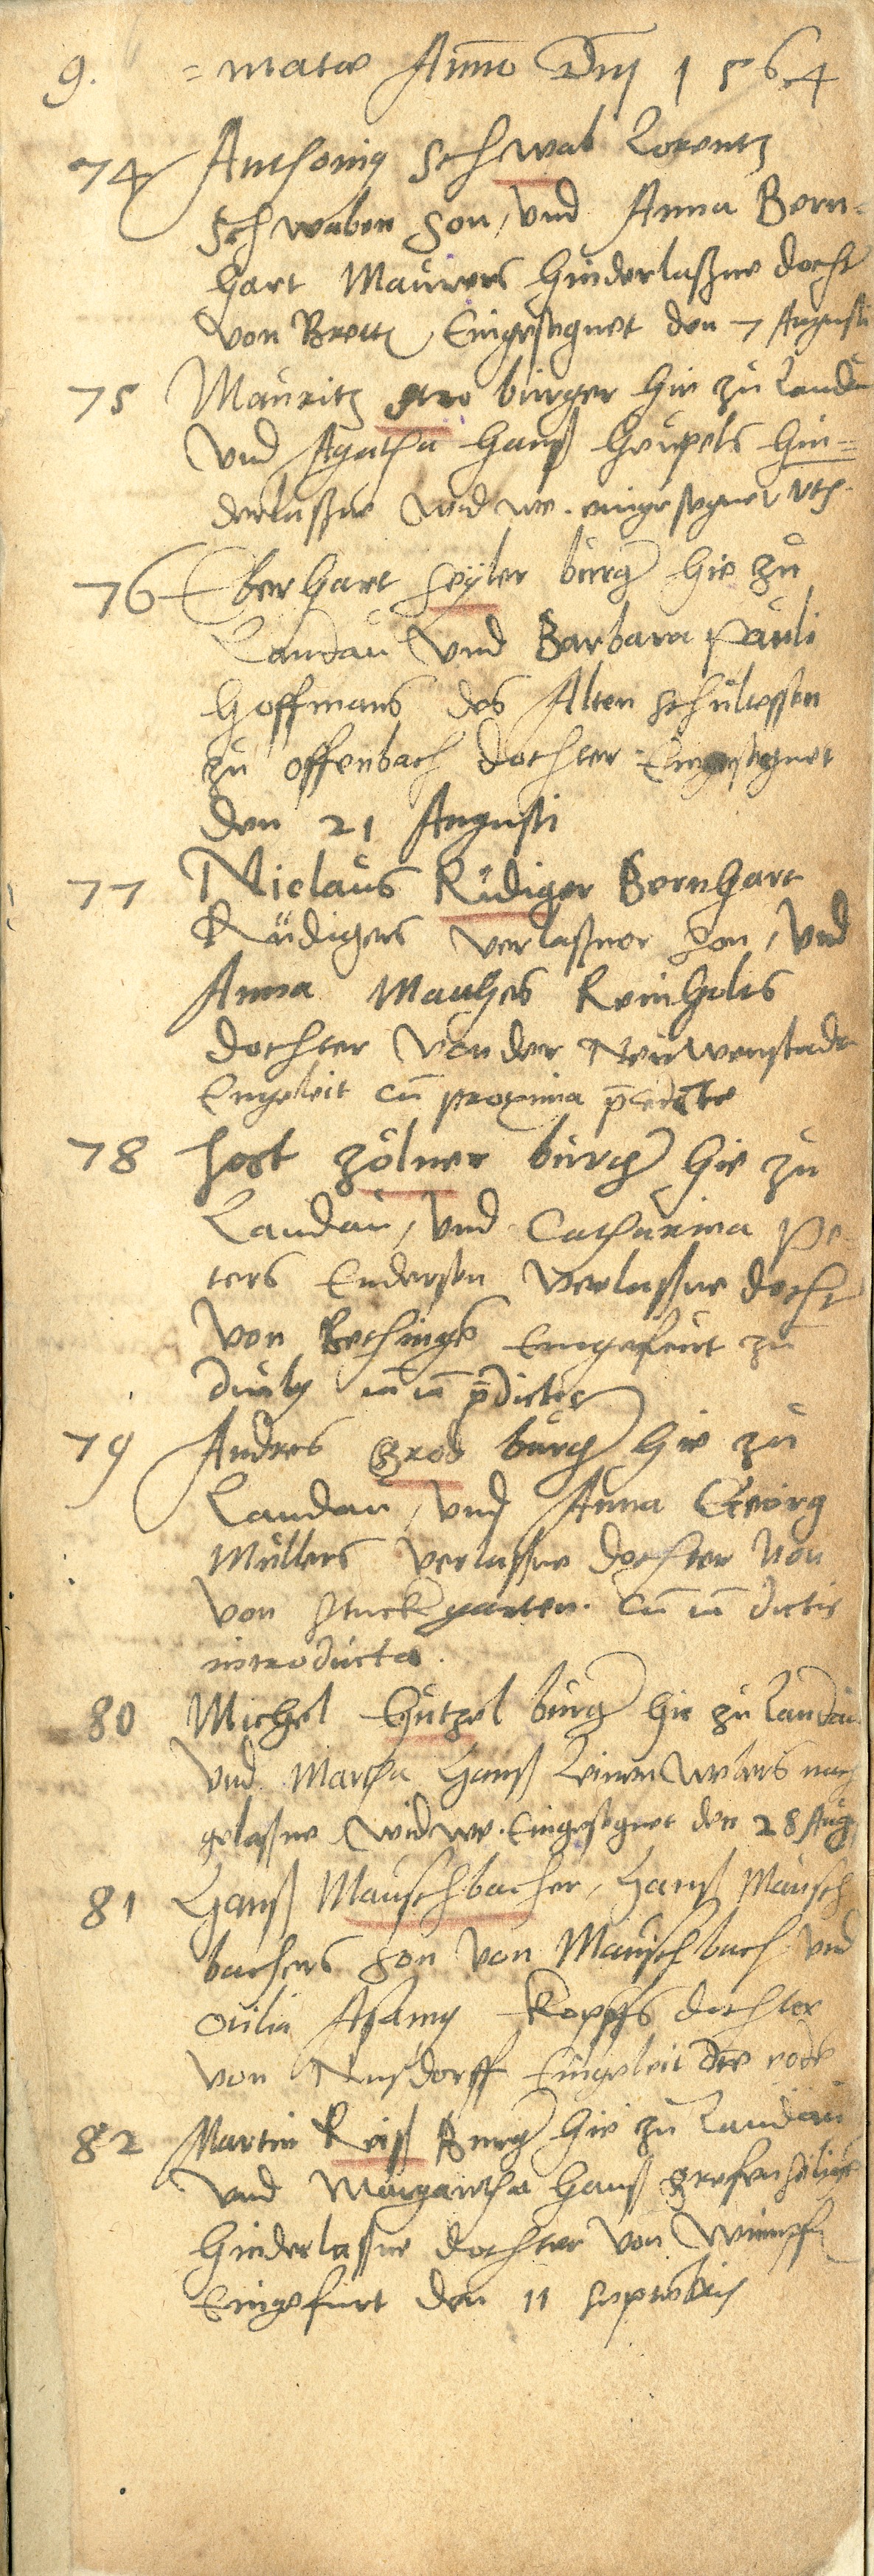 9. = matæ Anno Dnj 1564
74 Anthonig Schwab Lorentz
Schwaben Son, und Anna Bern-
hart Maurers hinderlaßne docht
von Brett Eingesegnet den 7 Augusti
75 Mauritz burger hie zu Landau
und Agatha Hanß Heupels hin=
derlaßne widwe. eingesegnet uts.
76 Eberhart Seyler burg hie zu
Landau und Barbara Pauli
Hoffmans des Alten schultessen
zu Offenbach dochter. Eingesegnet
den 21 Augusti
77 Niclaus Rüdiger Bernhart
Rüdigers verlaßner son, und
Anna Mathes Reinholts
dochter von der Neuwenstadt
Eingeleit cū proxima
78 Jost Zölner burg hie zu
Landau, und Catharina Pe-
ters Endersen verlaßne docht
von Eingefürt zu
79 Andres Grod burg hie zu
Landau, und Anna Georg
Müllers verlaßne dochter von
von Stuckgarten. cū dictis
introducta.
80 Michel Hützel burg hie zu Landau
und Martha Hanß Leinenwebers nach
gelaßne widwe. Eingesegnet den 28 Aug
81 Hanß Mauschbacher, Hanß Mausch
bachers son von Mauschbach und
Otilia Asamy Kopffs dochter
von Nusdorff Eingeleit die eodē
82 Martin Reiß Burg hie zu Landau
und Margretha Hanß
hinderlaßne dochter von Wimpf
Eingefürt den 11 Septēbris